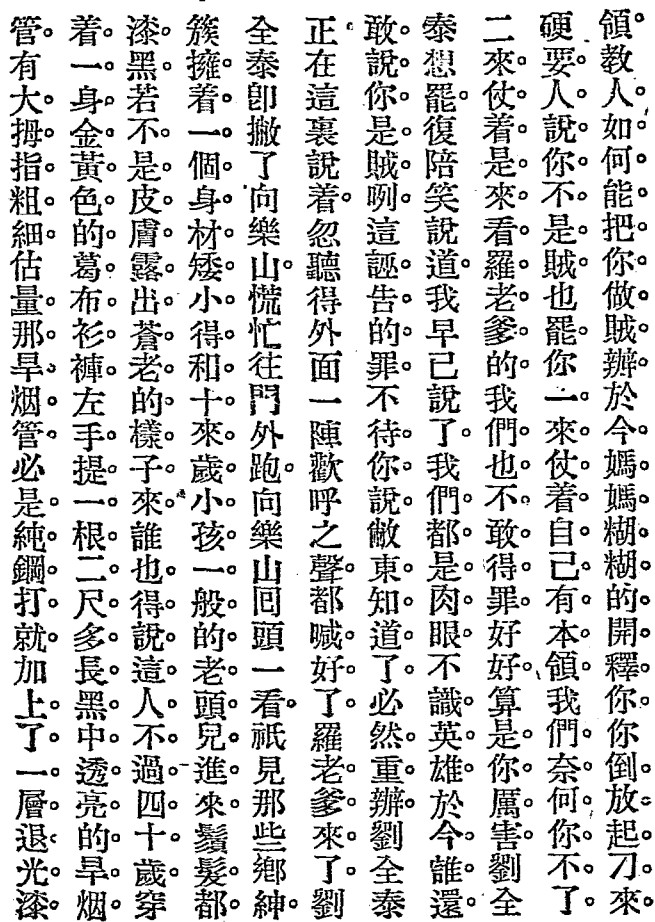 領教人如何能把你做賊辦於今媽媽糊糊的開釋你你倒放起刁來
硬要人說你不是賊也罷你一來仗着自己有本領我們奈何你不了
二來仗着是來看羅老爹的我們也不敢得罪好好算是你厲害劉全
泰想罷復陪笑說道我早已說了我們都是肉眼不識英雄於今誰還
敢說你是賊咧這誣告的罪不待你說敝東知道了必然重辦劉全泰
正在這裏說着忽聽得外面一陣歡呼之聲都喊好了羅老爹來了劉
全泰卽撇了向樂山慌忙往門外跑向樂山囘頭一看祇見那些鄉紳
簇擁着一個身材矮小得和十來歲小孩一般的老頭兒進來鬚髮都
漆黑若不是皮膚露出蒼老的樣子來誰也得說這人不過四十歲穿
着一身金黃色的葛布衫褲左手提一根二尺多長黑中透亮的旱烟
管有大拇指粗細估量那旱烟管必是純鋼打就加上了一層退光漆